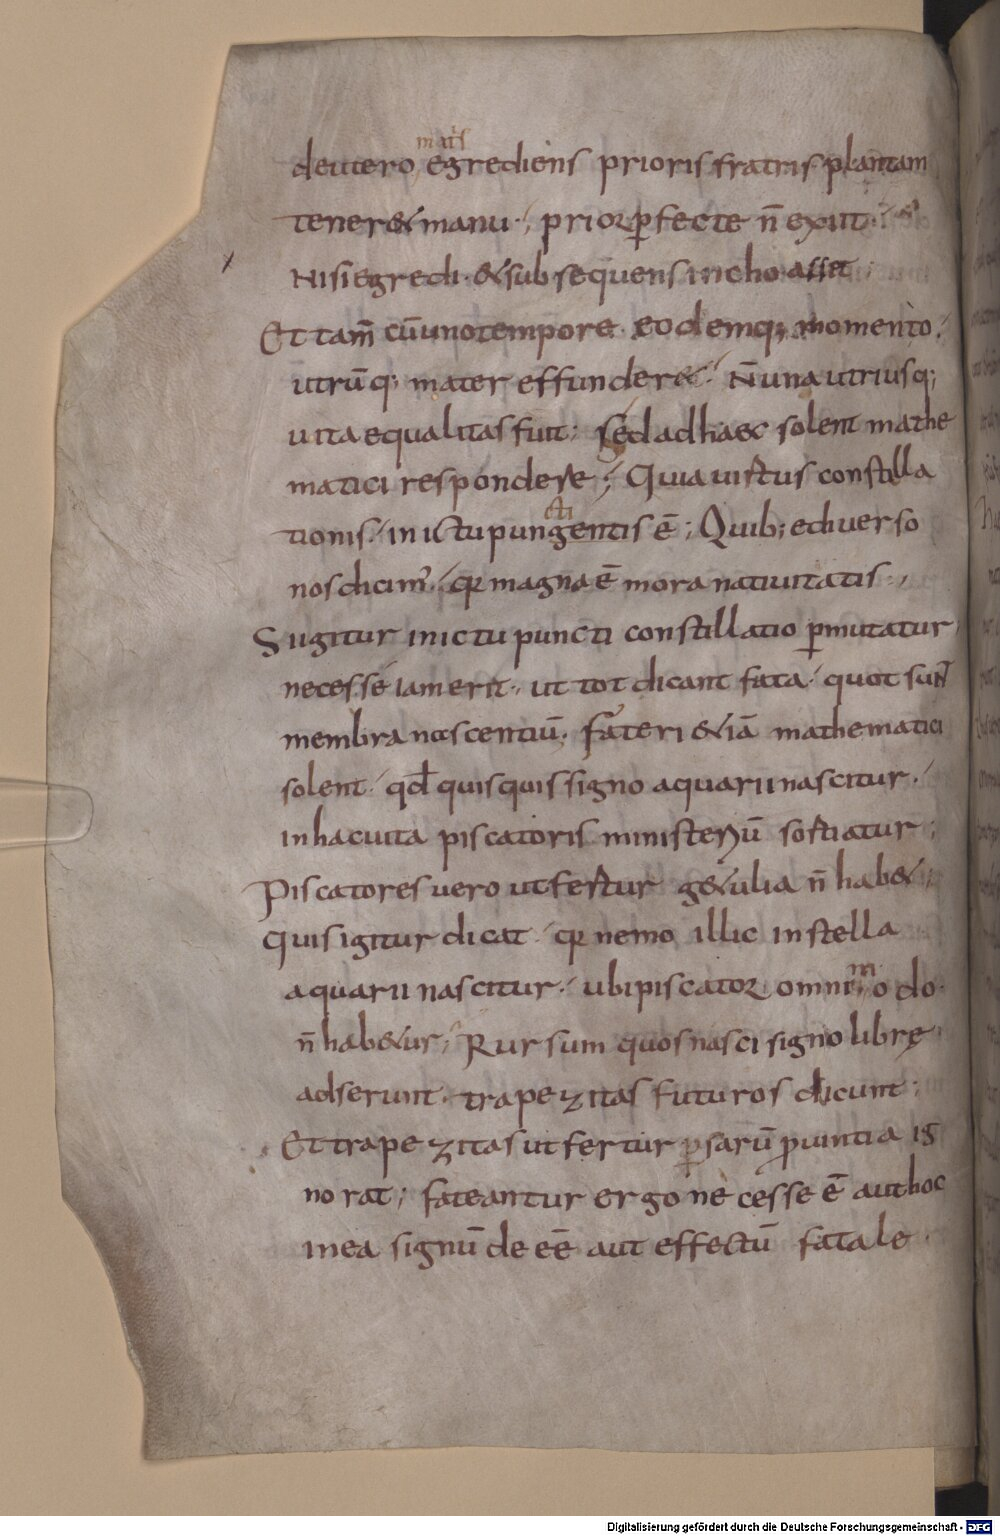 mat͛s
deutero egrediens prioris fratris plantam
tener& manu·, prior p̱fecte n̄ exiit·
Nisi egredi· & subsequens inchoasset·
Et tam̄ cū uno tempore· eodemq; momento·
utrūq; mater effunder&· N̄ una utriusq;
uita equalitas fuit; Sed ad haec solent mathe
matici respondere; Quia uirtus constella
cti
tionis· in ictu pungentis ē; Quib; e diuerso
nos dicim᾽· qr magna ē mora natiuitatis·,
Si igitur in ictu puncti constillatio p̱mutatur·
necesse iam erit·, ut tot dicant fata· quot sunt
membra nascentiū· Fateri & iā mathematici
solent· qđ quisquis signo aquarii nascitur·
in hac uita piscatoris ministeriū sortiatur;
Piscatores uero ut fertur g&ulia n̄ hab&;
Quis igitur dicat· qr nemo illic in stella
aquarii nascitur·, ubi piscator omni m o do·
n̄ hab&ur; Rursum quos nasci signo librę
adserunt· trapezitas futuros dicunt;
Et trapezitas ut fertur p̱sarū ꝓuintia ig
norat; fateantur ergo necesse ē aut hoc
in ea signū deeē aut effectū fatale·
Digitalisierung gefördert durch die Deutsche Forschungsgemeinschaft - DFG